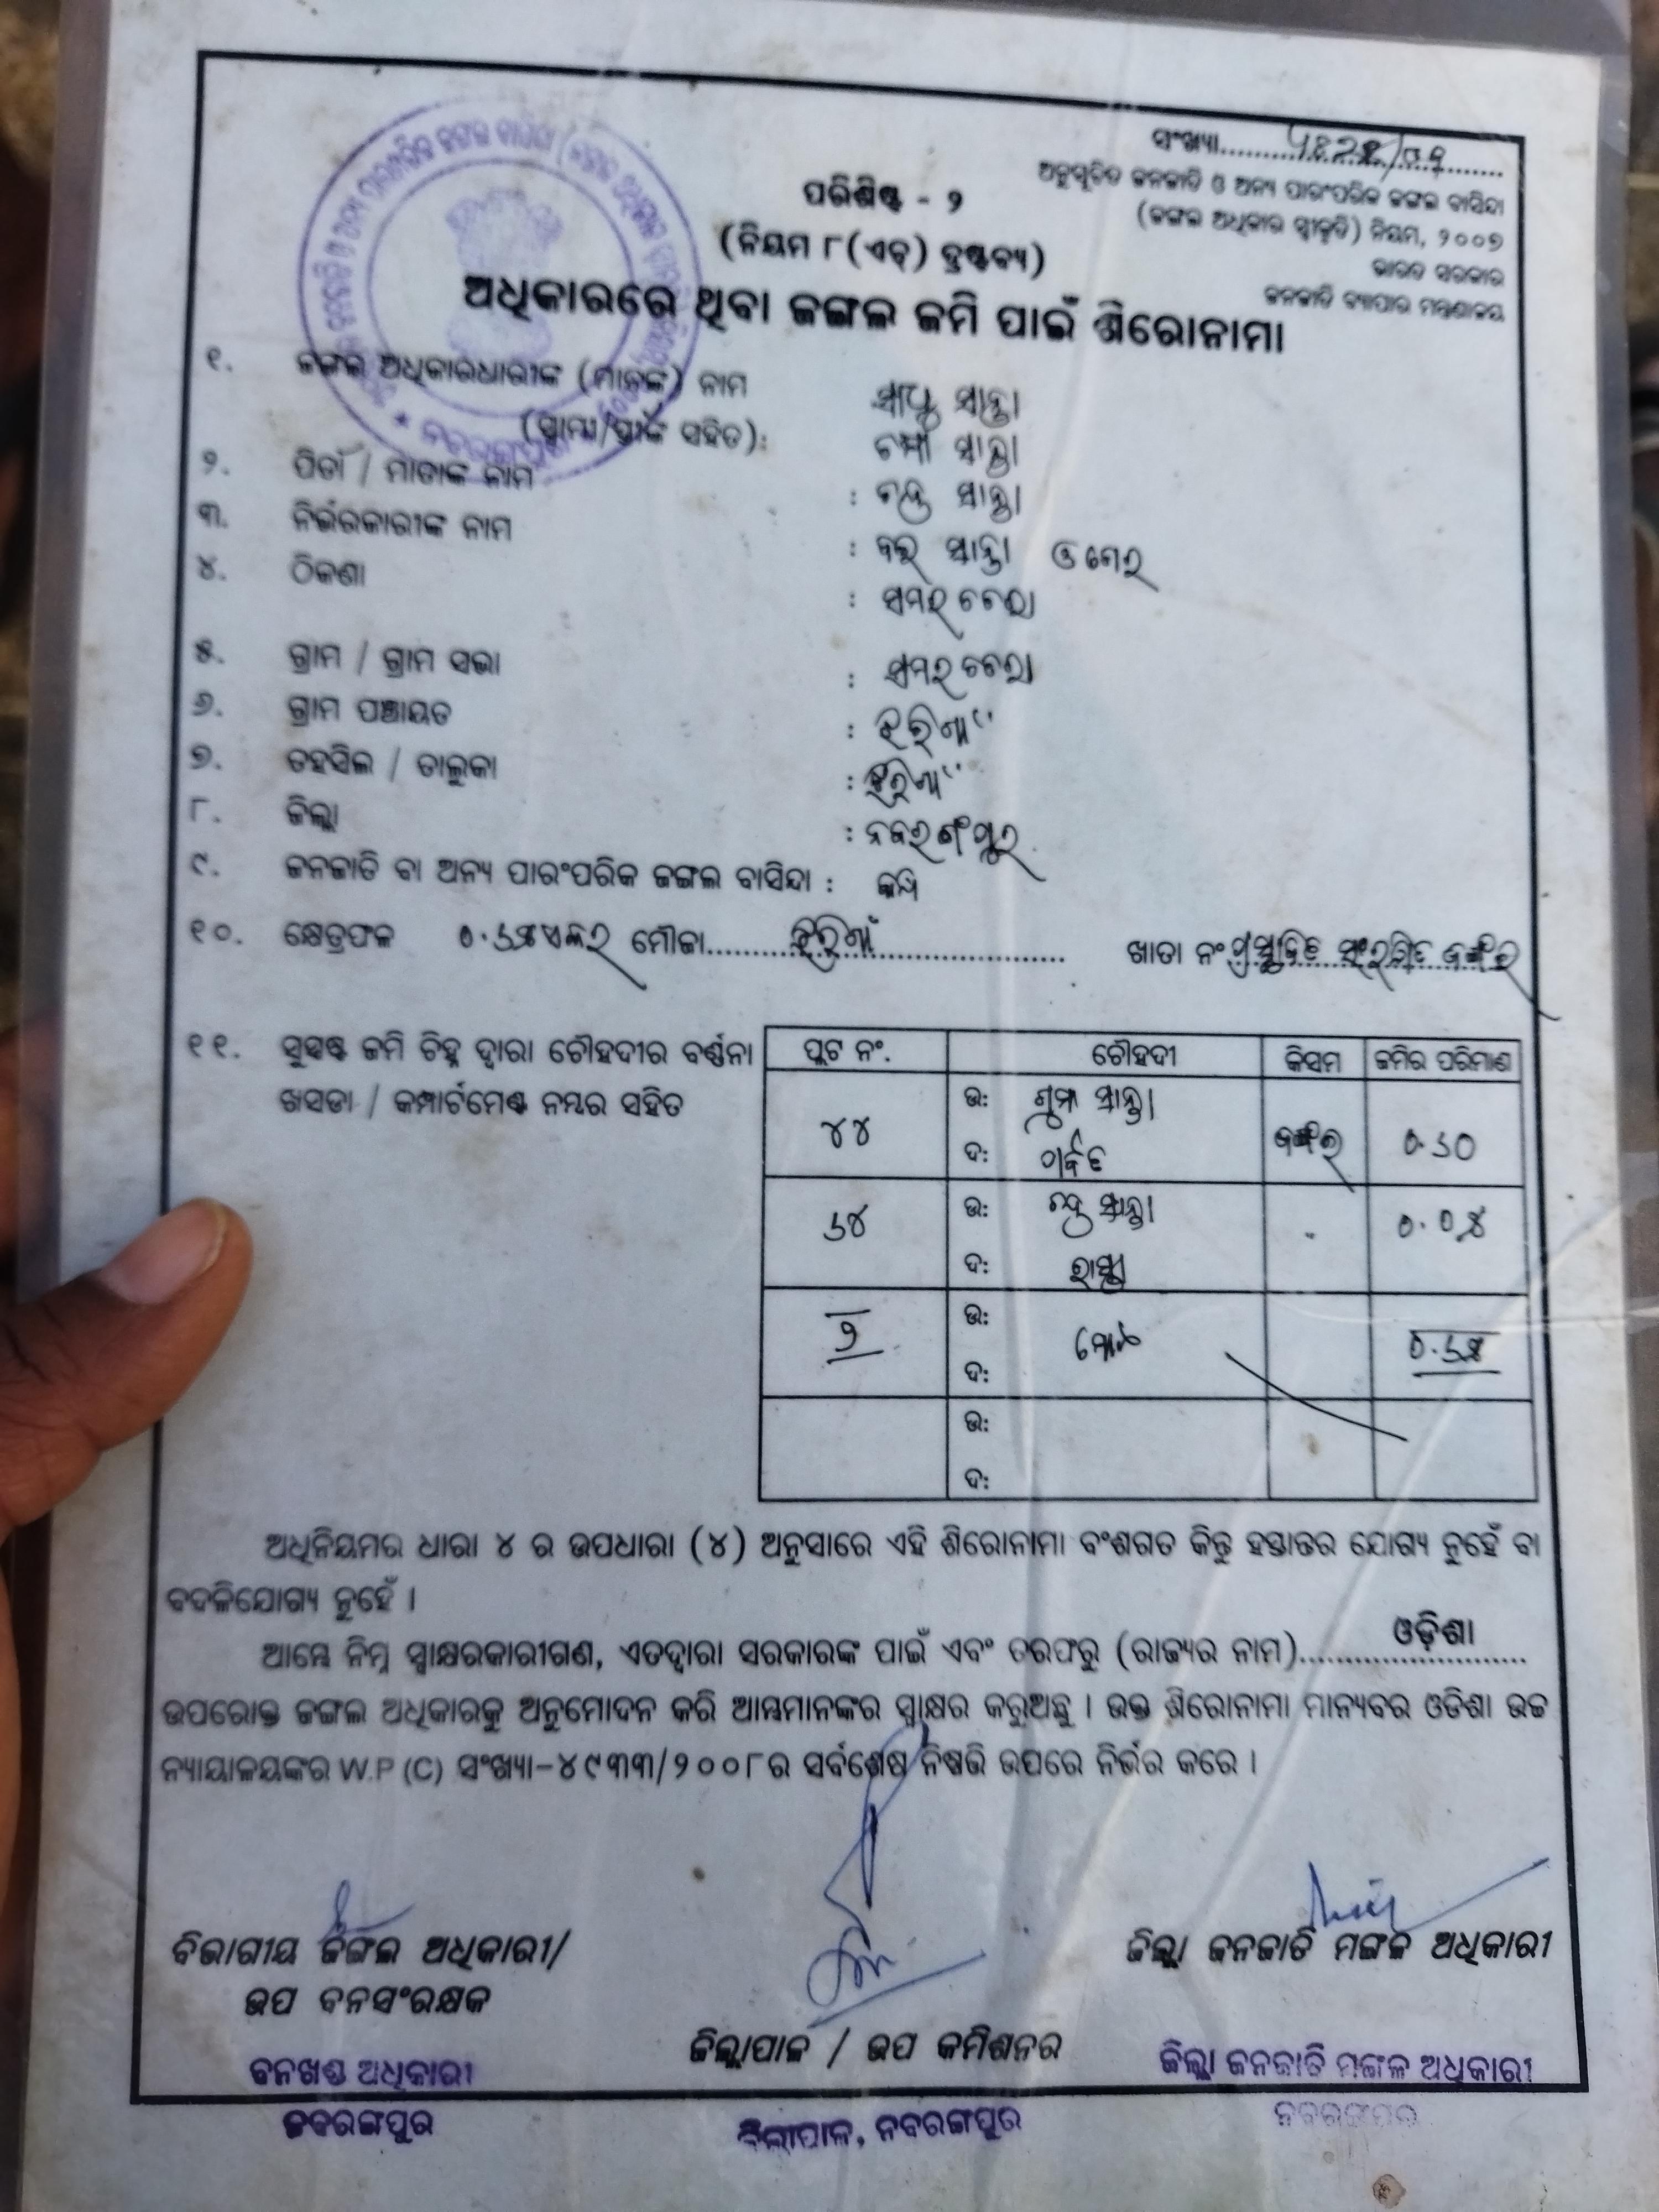 ସଂଖ୍ୟା
ଅନୁସୂଚିତ ଜନଜାତି ଓ ଅନ୍ୟ ପାରଂପରିକ ଜଙ୍ଗଲ ବାସିନ୍ଦା
(ଜଙ୍ଗଲ ଅଧିକାର ସ୍ୱୀକୃତି) ନିୟମ, ୨୦୦୭
ଭାରତ ସରକାର
ଜନଜାତି ବ୍ୟାପାର ମନ୍ତ୍ରଣାଳୟ
ପରିଶିଷ୍ଟ - ୨
(ନିୟମ ୮(ଏଚ୍) ଦ୍ରଷ୍ଟବ୍ୟ)
ଅଧିକାରରେ ଥିବା ଜଙ୍ଗଲ ଜମି ପାଇଁ ଶିରୋନାମା
୧. ଜଙ୍ଗଲ ଅଧିକାରଧାରୀଙ୍କ (ମାନଙ୍କ) ନାମ ସାଧୁ ସାନ୍ତା
(ସ୍ୱାମୀ/ସ୍ତ୍ରୀଙ୍କ ସହିତ): ଚମ୍ପା ସାନ୍ତା
୨. ପିତା / ମାତାଙ୍କ ନାମ : ସାନ୍ତା
୩. ନିର୍ଭରକାରୀଙ୍କ ନାମ : ସାନ୍ତା ଓ
୪. ଠିକଣା :
୫. ଗ୍ରାମ / ଗ୍ରାମ ସଭା :
୬. ଗ୍ରାମ ପଞ୍ଚାୟତ : ଝରିଗାଁ
୭. ତହସିଲ / ତାଲୁକା : ଝରିଗାଁ
୮. ଜିଲ୍ଲା : ନବରଙ୍ଗପୁର
୯. ଜନଜାତି ବା ଅନ୍ୟ ପାରଂପରିକ ଜଙ୍ଗଲ ବାସିନ୍ଦା :
୧୦. କ୍ଷେତ୍ରଫଳ ୦.୬୫ଏକର ମୌଜା ଝରିଗାଁ ଖାତା ନଂ ପ୍ରସ୍ତାବିତ ସଂରକ୍ଷିତ ଜଙ୍ଗଲ
୧୧. ସୁସ୍ପଷ୍ଟ ଜମି ଚିହ୍ନ ଦ୍ୱାରା ଚୌହଦୀର ବର୍ଣ୍ଣନା
ଖସଡା / କମ୍ପାର୍ଟମେଣ୍ଟ ନମ୍ବର ସହିତ
ପ୍ଲଟ ନଂ. ଚୌହଦୀ କିସମ ଜମିର ପରିମାଣ
୪୪ ଉ: ସାନ୍ତା ଜଙ୍ଗଲ ୦.୬୦
ଦ: ପର୍ବତ
୬୪ ଉ: ସାନ୍ତା ୦.୦୫
ଦ: ରାସ୍ତା
୨ ଉ: ମୋଟ ୦.୬୫
ଦ:
ଉ:
ଦ:
ଅଧିନିୟମର ଧାରା ୪ ର ଉପଧାରା (୪) ଅନୁସାରେ ଏହି ଶିରୋନାମା ବଂଶଗତ କିନ୍ତୁ ହସ୍ତାନ୍ତର ଯୋଗ୍ୟ ନୁହେଁ ବା
ବଦଳିଯୋଗ୍ୟ ନୁହେଁ ।
ଆମ୍ଭେ ନିମ୍ନ ସ୍ୱାକ୍ଷରକାରୀଗଣ, ଏତଦ୍ୱାରା ସରକାରଙ୍କ ପାଇଁ ଏବଂ ତରଫରୁ (ରାଜ୍ୟର ନାମ) ଓଡ଼ିଶା
ଉପରୋକ୍ତ ଜଙ୍ଗଲ ଅଧିକାରକୁ ଅନୁମୋଦନ କରି ଆମ୍ଭମାନଙ୍କର ସ୍ୱାକ୍ଷର କରୁଅଛୁ । ଉକ୍ତ ଶିରୋନାମା ମାନ୍ୟବର ଓଡିଶା ଉଚ୍ଚ
ନ୍ୟାୟାଳୟଙ୍କର W.P (C) ସଂଖ୍ୟା-୪୯୩୩/୨୦୦୮ର ସର୍ବଶେଷ ନିଷ୍ପତ୍ତି ଉପରେ ନିର୍ଭର କରେ ।
ବିଭାଗୀୟ ଜଙ୍ଗଲ ଅଧିକାରୀ/
ଉପ ବନସଂରକ୍ଷକ
ଜିଲ୍ଲାପାଳ / ଉପ କମିଶନର
ଜିଲ୍ଲା ଜନଜାତି ମଙ୍ଗଳ ଅଧିକାରୀ
ବନଖଣ୍ଡ ଅଧିକାରୀ
ନବରଙ୍ଗପୁର
ଜିଲ୍ଲାପାଳ, ନବରଙ୍ଗପୁର
ଜିଲ୍ଲା ଜନଜାତି ମଙ୍ଗଳ ଅଧିକାରୀ
ନବରଙ୍ଗପୁର